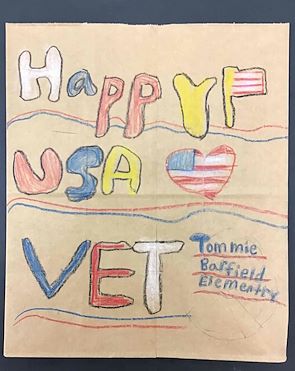 Happy
USA
VET
Tommie
Barfield
Elementry